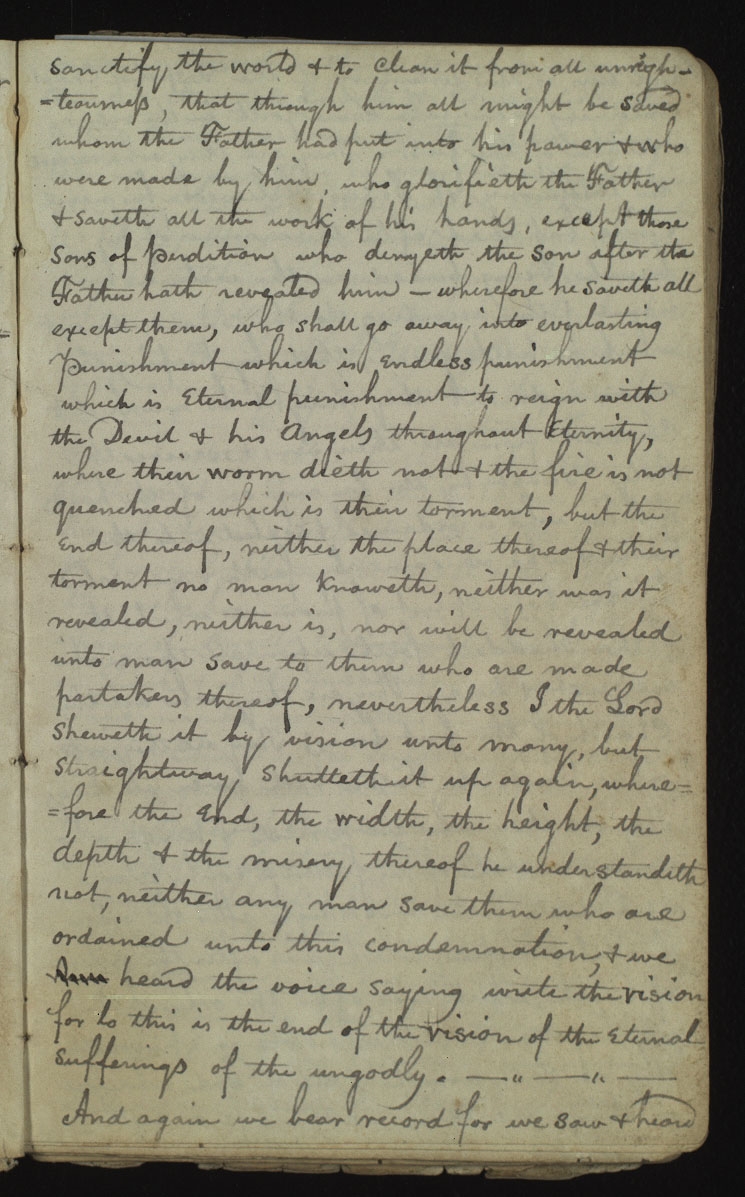 sanctify the world & to clean it from all unrigh-
=teousness, that through him all might be saved
whom the Father had put into his power & who
were made by him, who glorifieth the Father
& saveth all the work of his hands, except those
Sons of perdition who denyeth the Son after the
Father hath revealed him – wherefore he saveth all
except them, who shall go away into everlasting
Punishment which is Endless punishment
which is Eternal punishment to reign with
the Devil & his Angels throughout Eternity,
where their worm dieth not & the fire is not
quenched which is their torment, but the
End thereof, neither the place thereof & their
torment no man knoweth, neither was it
revealed, neither is, nor will be revealed
unto man save to them who are made
partakers thereof, nevertheless I the Lord
sheweth it by vision unto many, but
Straightway shutteth it up again, where=
=fore the End, the width, the height, the
depth & the misery thereof he understandeth
not, neither any man save them who are
ordained unto this condemnation, & we
heard the voice saying write the vision
for lo this is the end of the vision of the Eternal
Sufferings of the ungodly. — " — " —
And again we bear record for we saw & heard